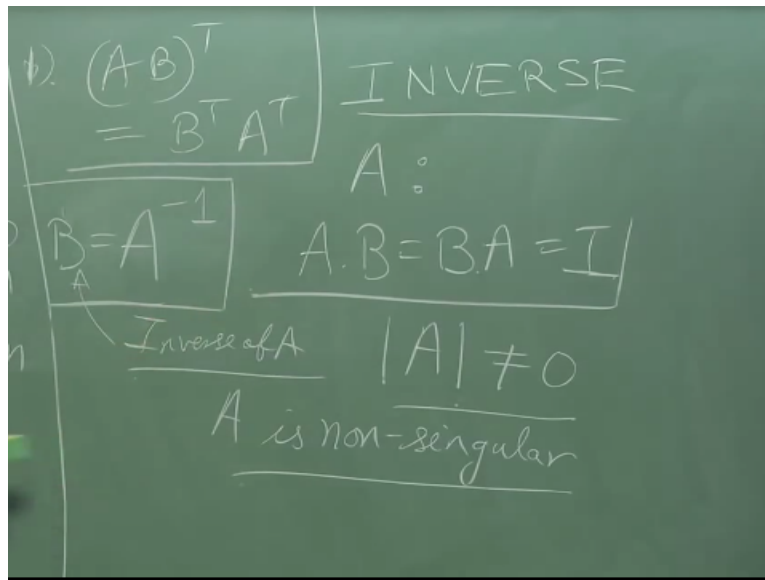 b). (AB)ᵀ
= Bᵀ Aᵀ
INVERSE
A :
B = A⁻¹
A.B = B.A = I
Inverse of A
|A| ≠ 0
A is non-singular